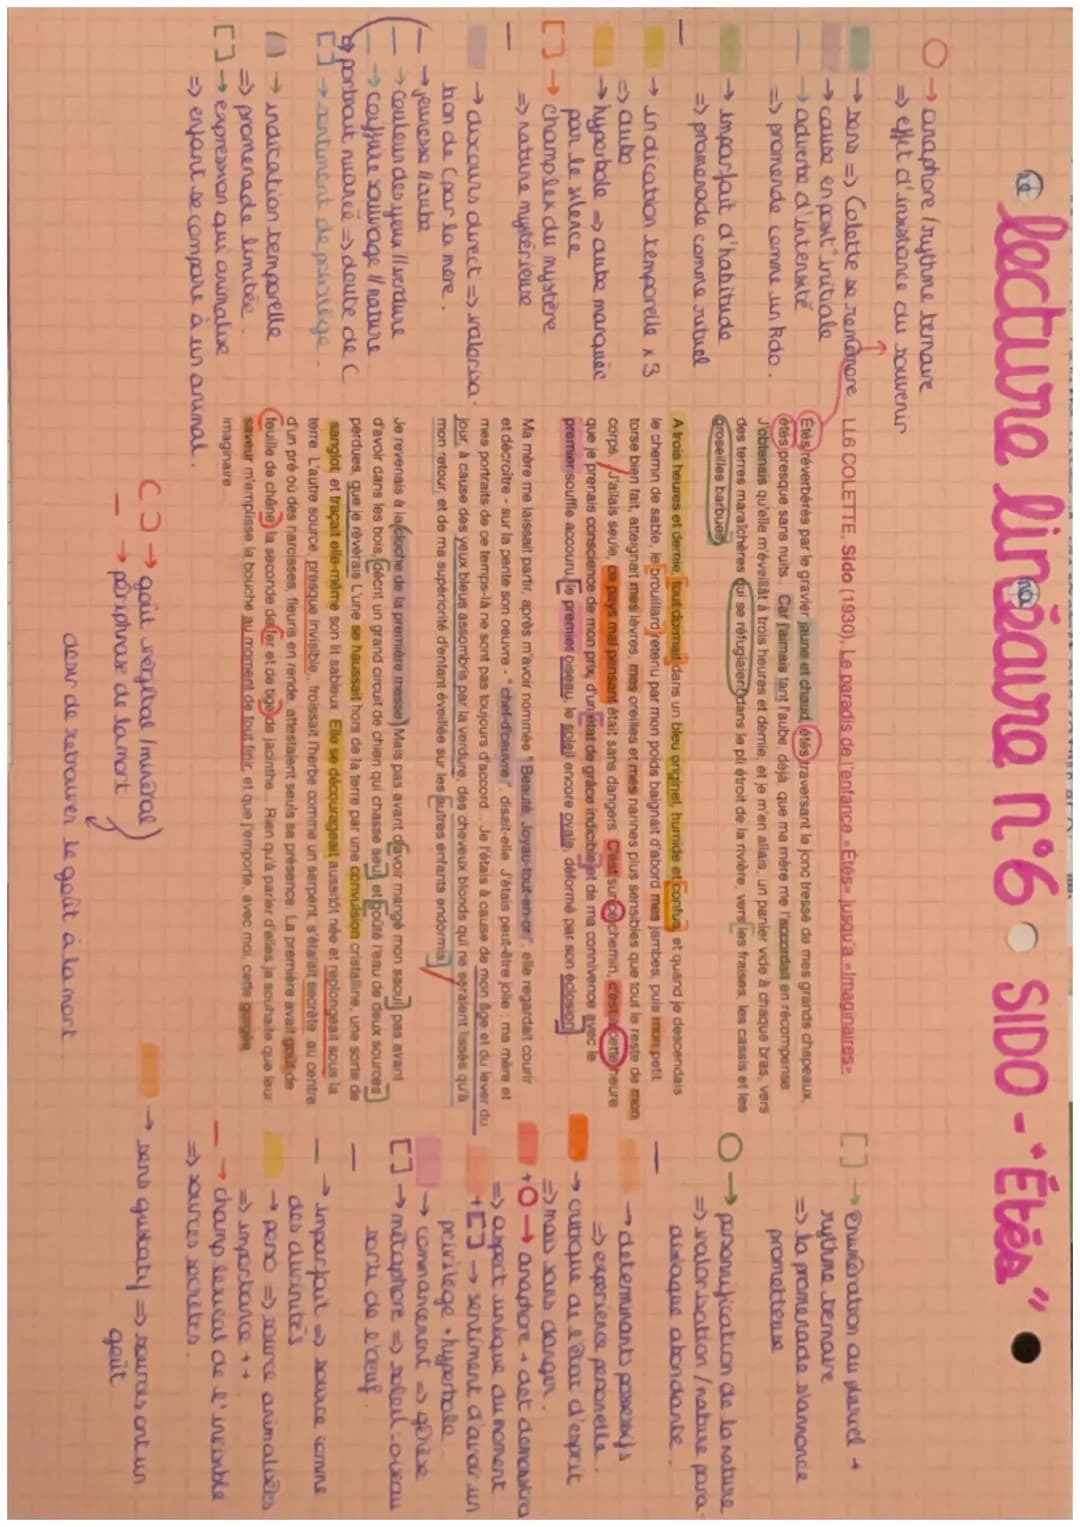 la lecture linéaire n°6 ○ SIDO - "Étés" ●
○ → anaphore / rythme ternaire
=> effet d'insistance du souvenir
→ sens => Colette se remémore
→ cause en posit° initiale
→ adverbe d'intensité
=> promenade comme un Rdo.
→ imparfait d'habitude
=> promenade comme rituel
→ indication temporelle x 3
=> aube
→ hyperbole => aube marquée
par le silence
[ ] → champlex du mystère
=> nature mystérieuse
→ discours direct => valorisa-
tion de C par la mère.
→ jeunesse // aube
→ couleur des yeux // verdure
→ coiffure sauvage // nature
↳ portrait nuancé => doute de C
[ ] → sentiment de privilège.
( ) → indication temporelle
=> promenade limitée.
[ ] → expression qui animalise
=> enfant se compare à un animal.
LL6 COLETTE, Sido (1930), Le paradis de l'enfance «Étés» jusqu'à «Imaginaires»
Étés réverbérés par le gravier jaune et chaud, étés traversant le jonc tressé de mes grands chapeaux,
étés presque sans nuits. Car j'aimais tant l'aube, déjà, que ma mère me l'accordait en récompense.
J'obtenais qu'elle m'éveillât à trois heures et demie, et je m'en allais, un panier vide à chaque bras, vers
des terres maraîchères qui se réfugiaient dans le pli étroit de la rivière, vers les fraises, les cassis et les
groseilles barbues.
A trois heures et demie, tout dormait dans un bleu originel, humide et confus, et quand je descendais
le chemin de sable, le brouillard retenu par mon poids baignait d'abord mes jambes, puis mon petit
torse bien fait, atteignait mes lèvres, mes oreilles et mes narines plus sensibles que tout le reste de mon
corps. J'allais seule, ce pays mal pensant était sans dangers. C'est sur ce chemin, c'est à cette heure
que je prenais conscience de mon prix, d'un état de grâce indicible et de ma connivence avec le
premier souffle accouru, le premier oiseau, le soleil encore ovale, déformé par son éclosion.
Ma mère me laissait partir, après m'avoir nommée "Beauté, Joyau-tout-en-or", elle regardait courir
et décroître - sur la pente son œuvre - "chef-d'œuvre", disait-elle. J'étais peut-être jolie ; ma mère et
mes portraits de ce temps-là ne sont pas toujours d'accord... Je l'étais à cause de mon âge et du lever du
jour, à cause des yeux bleus assombris par la verdure, des cheveux blonds qui ne seraient lissés qu'à
mon retour, et de ma supériorité d'enfant éveillée sur les autres enfants endormis.
Je revenais à la cloche de la première messe. Mais pas avant d'avoir mangé mon saoul, pas avant
d'avoir dans les bois, décrit un grand circuit de chien qui chasse seul, et goûté l'eau de deux sources
perdues, que je révérais. L'une se haussait hors de la terre par une convulsion cristalline, une sorte de
sanglot, et traçait elle-même son lit sableux. Elle se décourageait aussitôt née et replongeait sous la
terre. L'autre source, presque invisible, froissait l'herbe comme un serpent, s'étalait secrète au centre
d'un pré où des narcisses, fleuris en ronde, attestaient seuls sa présence. La première avait goût de
feuille de chêne, la seconde de fer et de tige de jacinthe... Rien qu'à parler d'elles je souhaite que leur
saveur m'emplisse la bouche au moment de tout finir, et que j'emporte, avec moi, cette gorgée
imaginaire...
[ ] → goût végétal / minéral)
→ périphrase de la mort
desir de retrouver le goût à la mort
[ ] → énumération au pluriel +
rythme ternaire
=> la promenade s'annonce
prometteuse
○ → personification de la nature
=> valorisation / nature para-
disiaque abondante.
→ determinants possessifs
=> experience personelle.
→ critique du
=> mais sans danger.
+ ○ → anaphore + det demonstra
=> aspect unique du moment
+ [ ] → sentiment d'avoir un
privilège + hyperbole
→ commencement => génèse
[ ] → métaphore => soleil = oiseau
sorti de l'œuf.
→ imparfait => source comme
des divinités
→ perso => source animalisées
=> importance ++
→ champ lexical de l'invisible
=> sources secrètes.
→ sens gustatif => sources ont un
goût